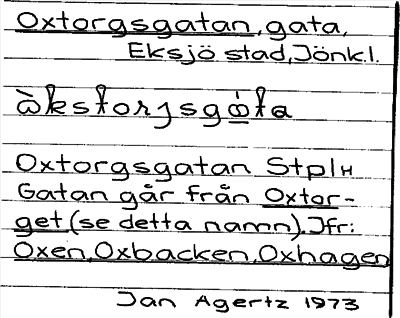 Oxtorgsgatan, gata,
Eksjö stad, Jönk.l.
Oxtorgsgatan StplH
Gatan går från Oxtor-
get (se detta namn). Jfr:
Oxen, Oxbacken, Oxhagen
Jan Agertz 1973